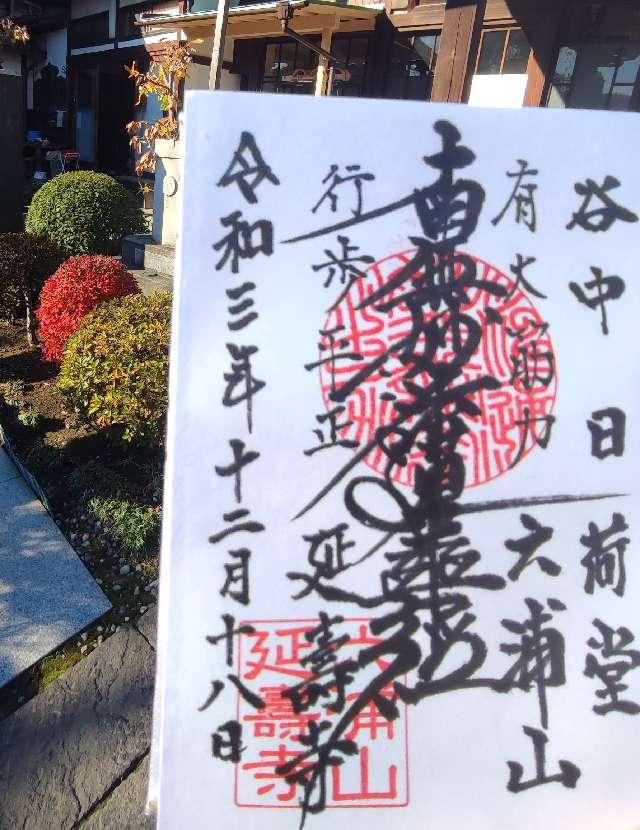 谷中日荷堂
六浦山
有大筋力
南無妙法蓮華経
行歩平正
延壽寺
令和三年十二月十八日
六浦山
延壽寺